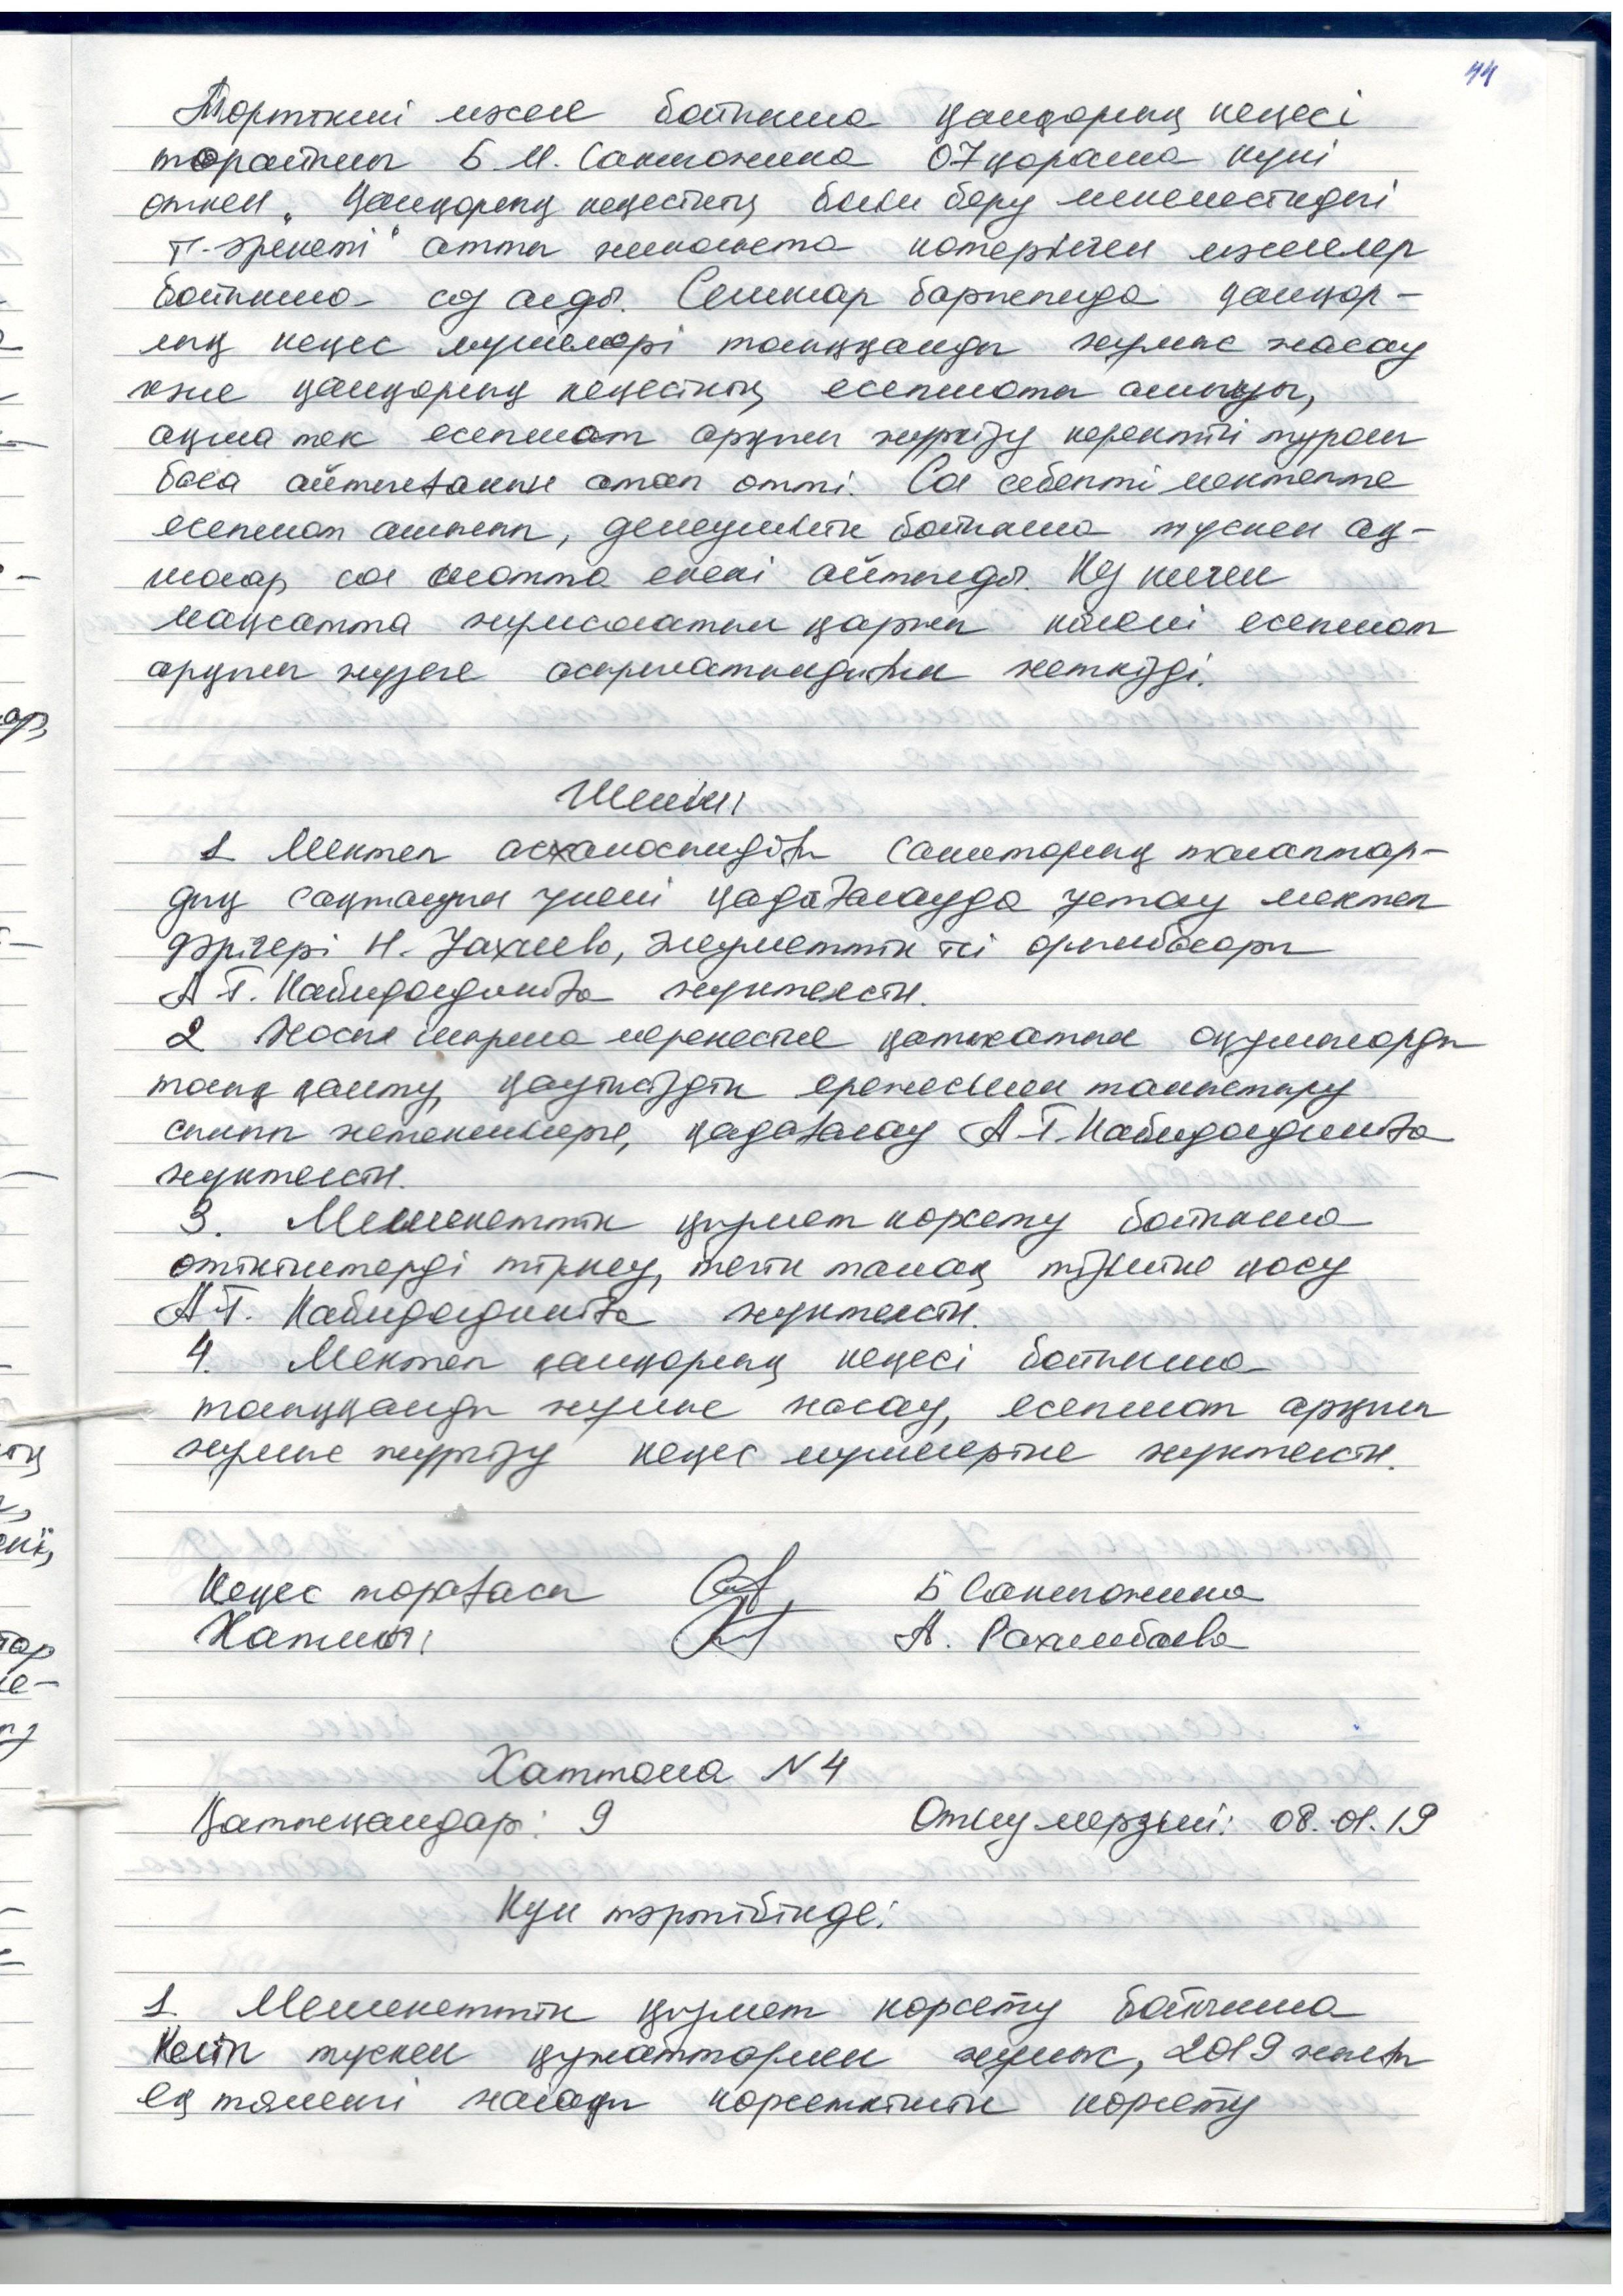 44
Төртінші мәселе бойынша қамқорлық кеңесі
төрайымы Б М. Сактожина 07 қараша күні
өткен „Қамқорлық кеңесінің білім беру мекемесіндегі
іс-әрекеті" атты жиналыста көтерілген мәселелер
бойынша сөз алды. Семинар барысында қамқор-
лық кеңес мүшелері тыңғылықты жұмыс жасау
және қамқорлық кеңесінің есепшоты ашылуы,
ақша тек есепшот арқылы жүргізу керектігі туралы
баса айтылғанын атап өтті. Сол себепті мектепте
есепшот ашылып, демеушілік бойынша түскен ақ-
шалар сол шотта екені айтылды. Кез келген
мақсатта жұмсалатын қаржы көлемі есепшот
арқылы жүзеге асырылатындығын жеткізді.
Шешімі
1 Мектеп асханасындағы санитарлық талаптар-
дың сақталуын үнемі қадағалауда ұстау мектеп
дәрігері Н. , әлеуметтік ісі орынбасары
А Т. Набидолдинаға жүктелсін.
2 Жаңа шырша мерекесіне қатысатын оқушыларды
қамту, қауіпсіздік ережесімен таныстыру
сынып жетекшілерге, қадағалау А Т. Набидолдинаға
жүктелсін.
3. Мемлекеттік қызмет көрсету бойынша
өтініштерді тіркеу, тегін тамақ тізіміне қосу
А Т. Набидолдинаға жүктелсін.
4. Мектеп қамқорлық кеңесі бойынша
жұмыс жасау, есепшот арқылы
жұмыс жүргізу кеңес мүшелеріне жүктелсін.
Кеңес төрағасы Б
Хатшы: А. Рахимбаева
Хаттама N 4
Қатысқандар: 9 Өткізу мерзімі: 08.01.19
Күн тәртібінде:
1. Мемлекеттік қызмет көрсету бойынша
түскен құжаттармен жұмыс, 2019 жылғы
ең төменгі жалақы көрсеткішін көрсету